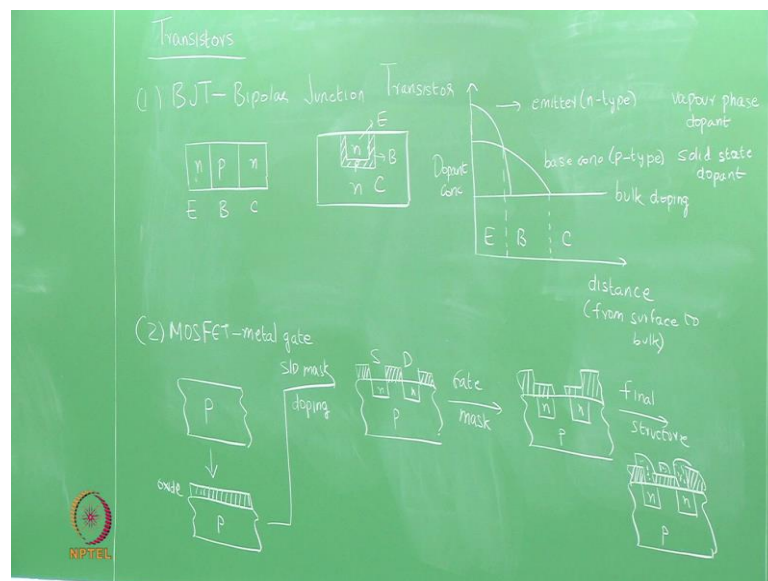 Transistors
(1) BJT - Bipolar Junction Transistor
n p n
E B C
E
n
B
n C
Dopant
conc
emitter (n-type)
vapour phase
dopant
base conc (p-type)
solid state
dopant
bulk doping
E B C
distance
(from surface to
bulk)
(2) MOSFET - metal gate
P
oxide
P
S/D mask
doping
S D
n n
P
Gate
mask
n n
P
final
structure
n n
P
NPTEL